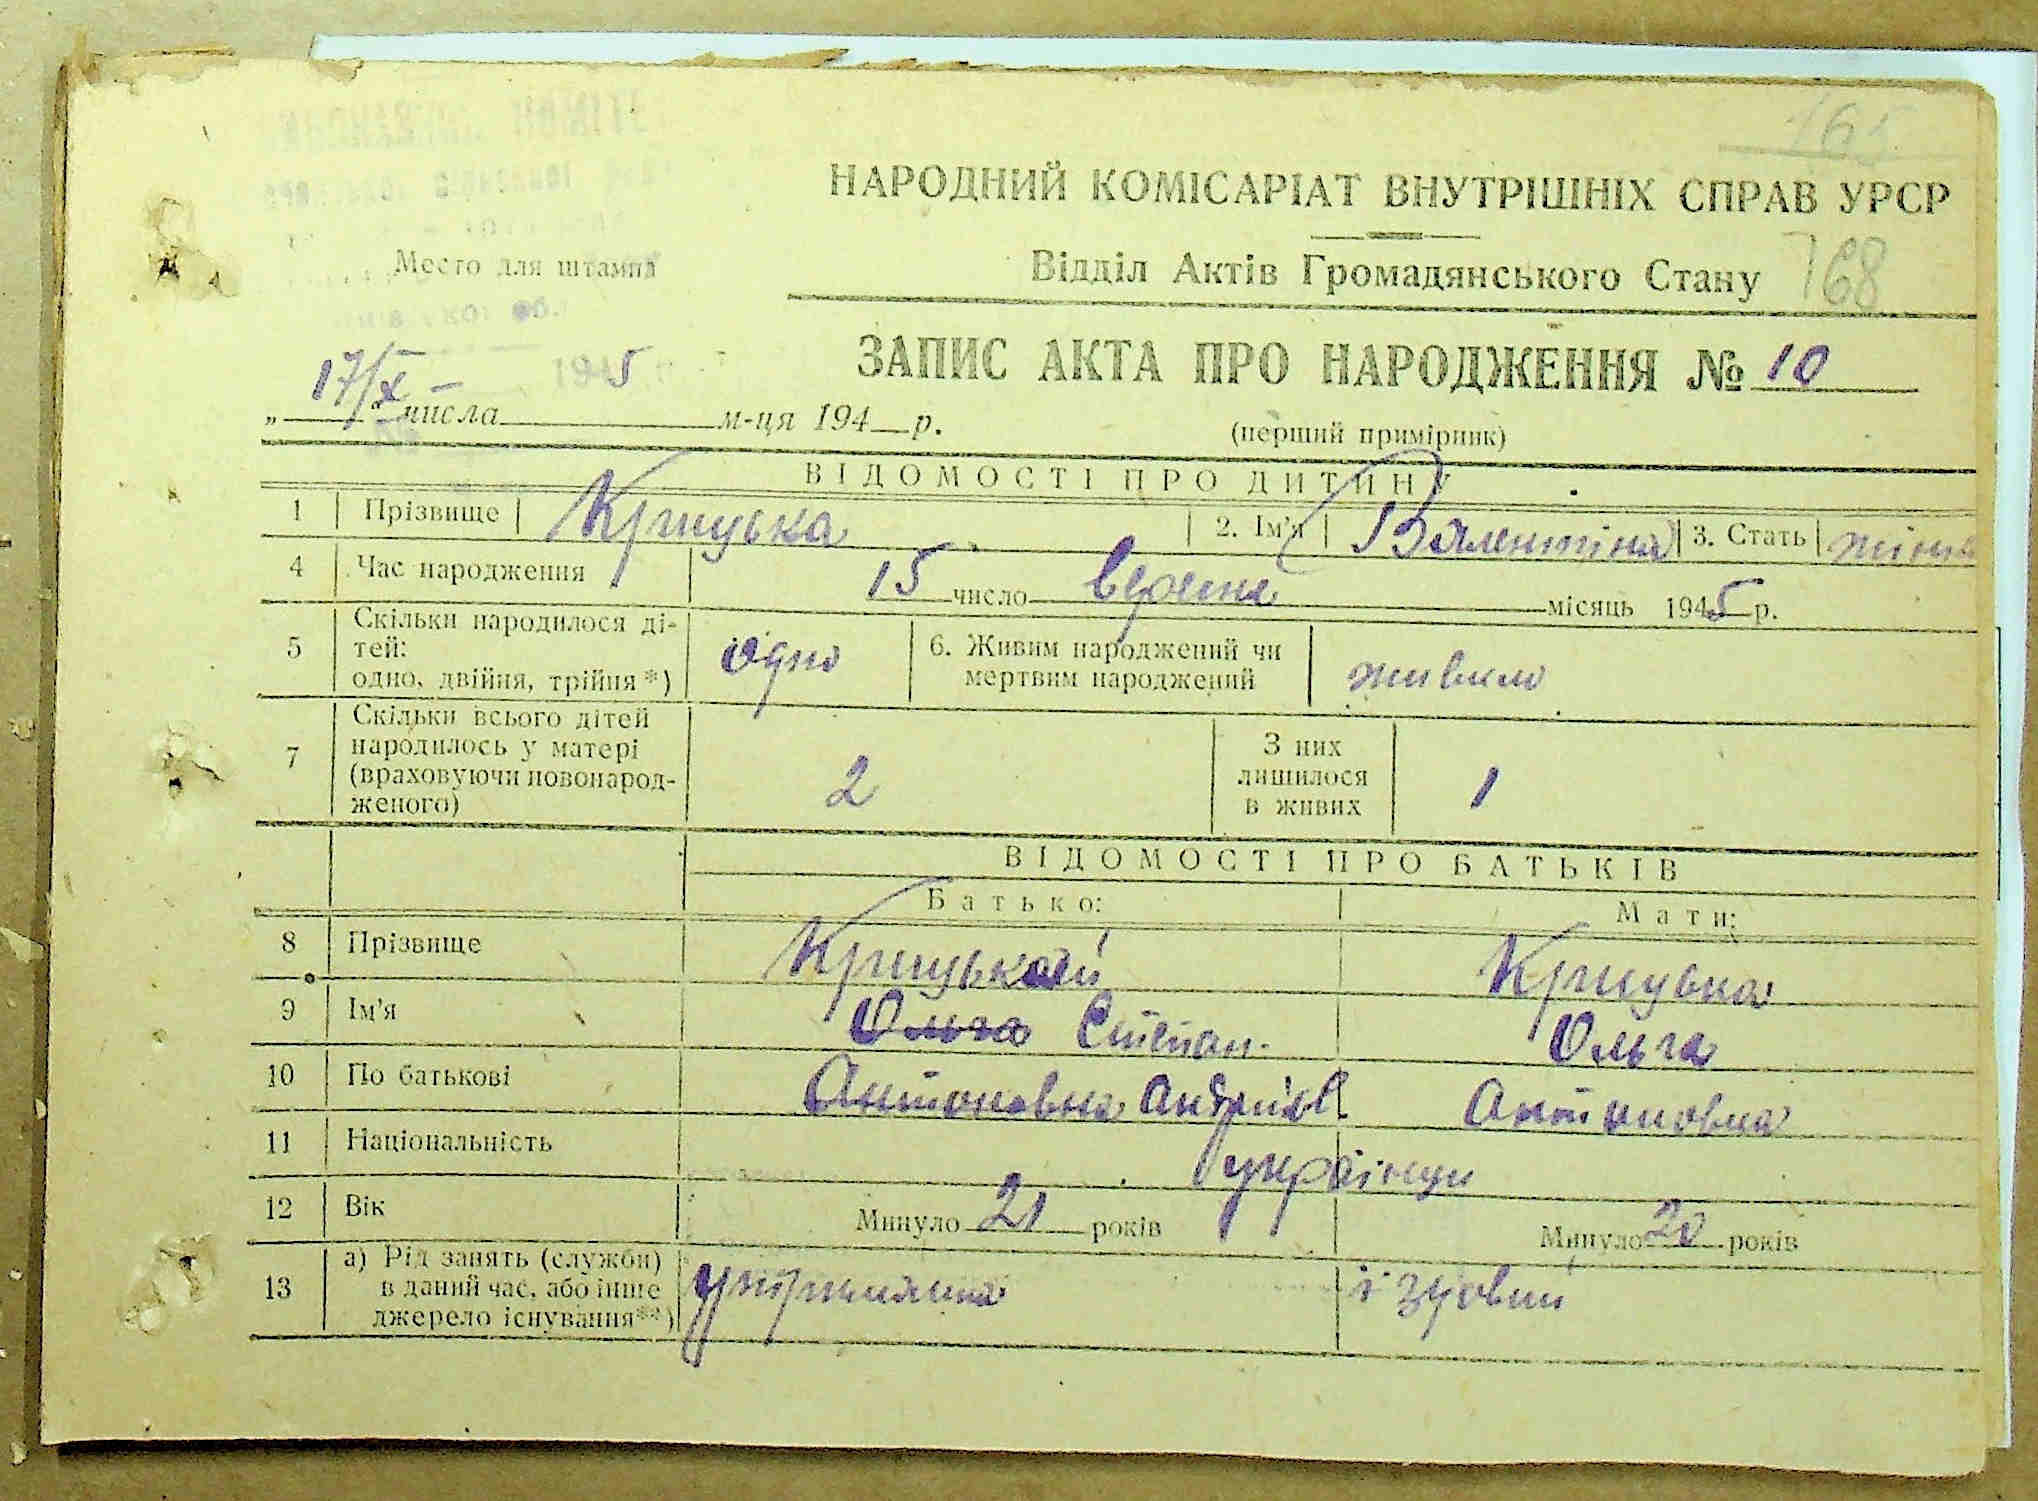 165
НАРОДНИЙ КОМІСАРІАТ ВНУТРІШНІХ СПРАВ УРСР
Место для штампа
Відділ Актів Громадянського Стану 768
ЗАПИС АКТА ПРО НАРОДЖЕННЯ № 10
17/X – 1945
„ числа м-ця 194 р.
(перший примірник)
ВІДОМОСТІ ПРО ДИТИНУ
1 Прізвище Крицька 2. Ім'я Валентіна 3. Стать
4 Час народження 15 число вересня місяць 1945 р.
5 Скільки народилося ді-
тей:
одно, двійня, трійня*) одно 6. Живим народжений чи
мертвим народжений живим
7 Скільки всього дітей
народилось у матері
(враховуючи новонарод-
женого) 2 З них
лишилося
в живих 1
ВІДОМОСТІ ПРО БАТЬКІВ
Батько: Мати:
8 Прізвище Крицькай Крицька
9 Ім'я Ольга Степан. Ольга
10 По батькові Антоновна Андріїв. Антоновна
11 Національність українци
12 Вік Минуло 21 років Минуло 20 років
13 а) Рід занять (служби)
в даний час, або інше
джерело існування**)